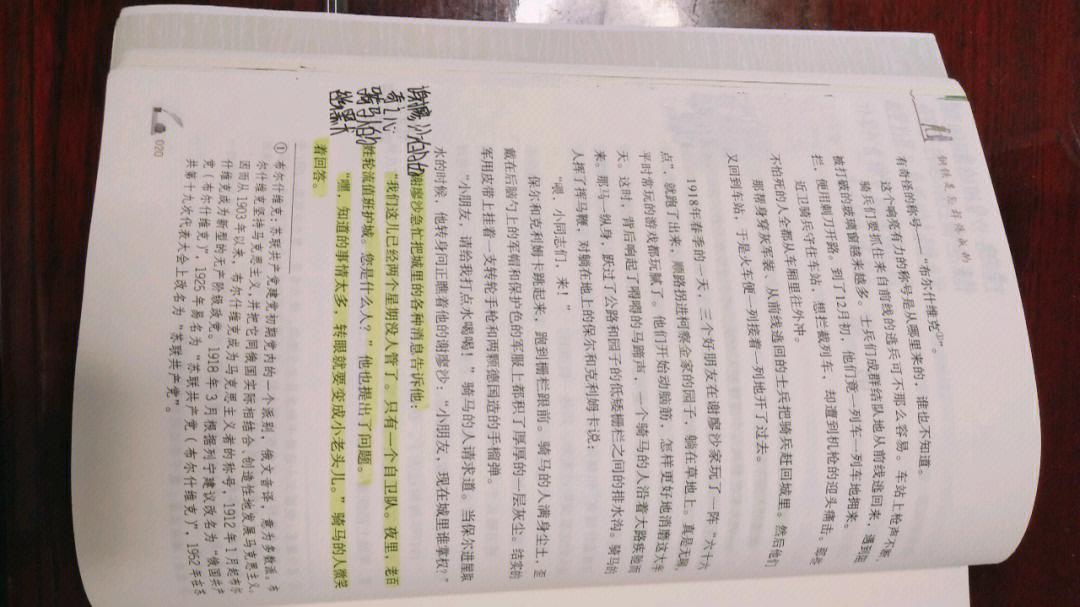 钢铁是怎样炼成的
有奇怪的称号——“布尔什维克①”。
这个响亮有力的称号是从哪里来的，谁也不知道。
骑兵们要抓住来自前线的逃兵可不那么容易。车站上枪声不断，
被打破的玻璃窗越来越多。士兵们成群结队地从前线逃回来，遇到阻
拦，便用刺刀开路。到了12月初，他们竟一列车一列车地拥来。
近卫骑兵守住车站，想拦截列车，却遭到机枪的迎头痛击。
不怕死的人全都从车厢里往外冲。
那帮身穿灰军装、从前线逃回的士兵把骑兵赶回城里。然后他们
又回到车站，于是火车便一列接着一列地开了过去。
1918年春季的一天，三个好朋友在谢廖沙家玩了一阵“六十六
点”，就跑了出来，顺路拐进柯察金家的园子，躺在草地上。真是无聊，
平时常玩的游戏都玩腻了。他们开始动脑筋，怎样更好地消磨这大半
天。这时，背后响起了嘚嘚的马蹄声，一个骑马的人沿着大路疾驰而
来。那马一纵身，跃过了公路和园子的低矮栅栏之间的排水沟。骑马的
人挥了挥马鞭，对躺在地上的保尔和克利姆卡说：
“喂，小同志们，来！”
保尔和克利姆卡跳起来，跑到栅栏跟前。骑马的人满身尘土，歪
戴在后脑勺上的军帽和保护色的军服上都积了厚厚的一层灰尘。结实的
军用皮带上挂着一支转轮手枪和两颗德国造的手榴弹。
“小朋友，请给我打点水喝喝！”骑马的人请求道。当保尔进屋取
水的时候，他转身问正瞧着他的谢廖沙：“小朋友，现在城里谁掌权？”
谢廖沙急忙把城里的各种消息告诉他：
“我们这儿已经两个星期没人管了。只有一个自卫队。夜里，老百
姓轮流值班护城。您是什么人？”他也提出了问题。
“嘿，知道的事情太多，转眼就要变成小老头儿。”骑马的人微笑
着回答。
骑马人的
幽默
① 布尔什维克：苏联共产党建党初期党内的一个派别，俄文音译，意为多数派。布
尔什维克坚持马克思主义，并把它同俄国实际相结合，创造性地发展马克思主义，
因而从1903年以来，布尔什维克成为马克思主义者的称号，1912年1月起布尔
什维克成为新型的无产阶级政党。1918年3月根据列宁建议改名为“俄国共产
党（布尔什维克）”，1925年易名为“苏联共产党（布尔什维克）”，1952年在苏
共第十九次代表大会上改名为“苏联共产党”。
020